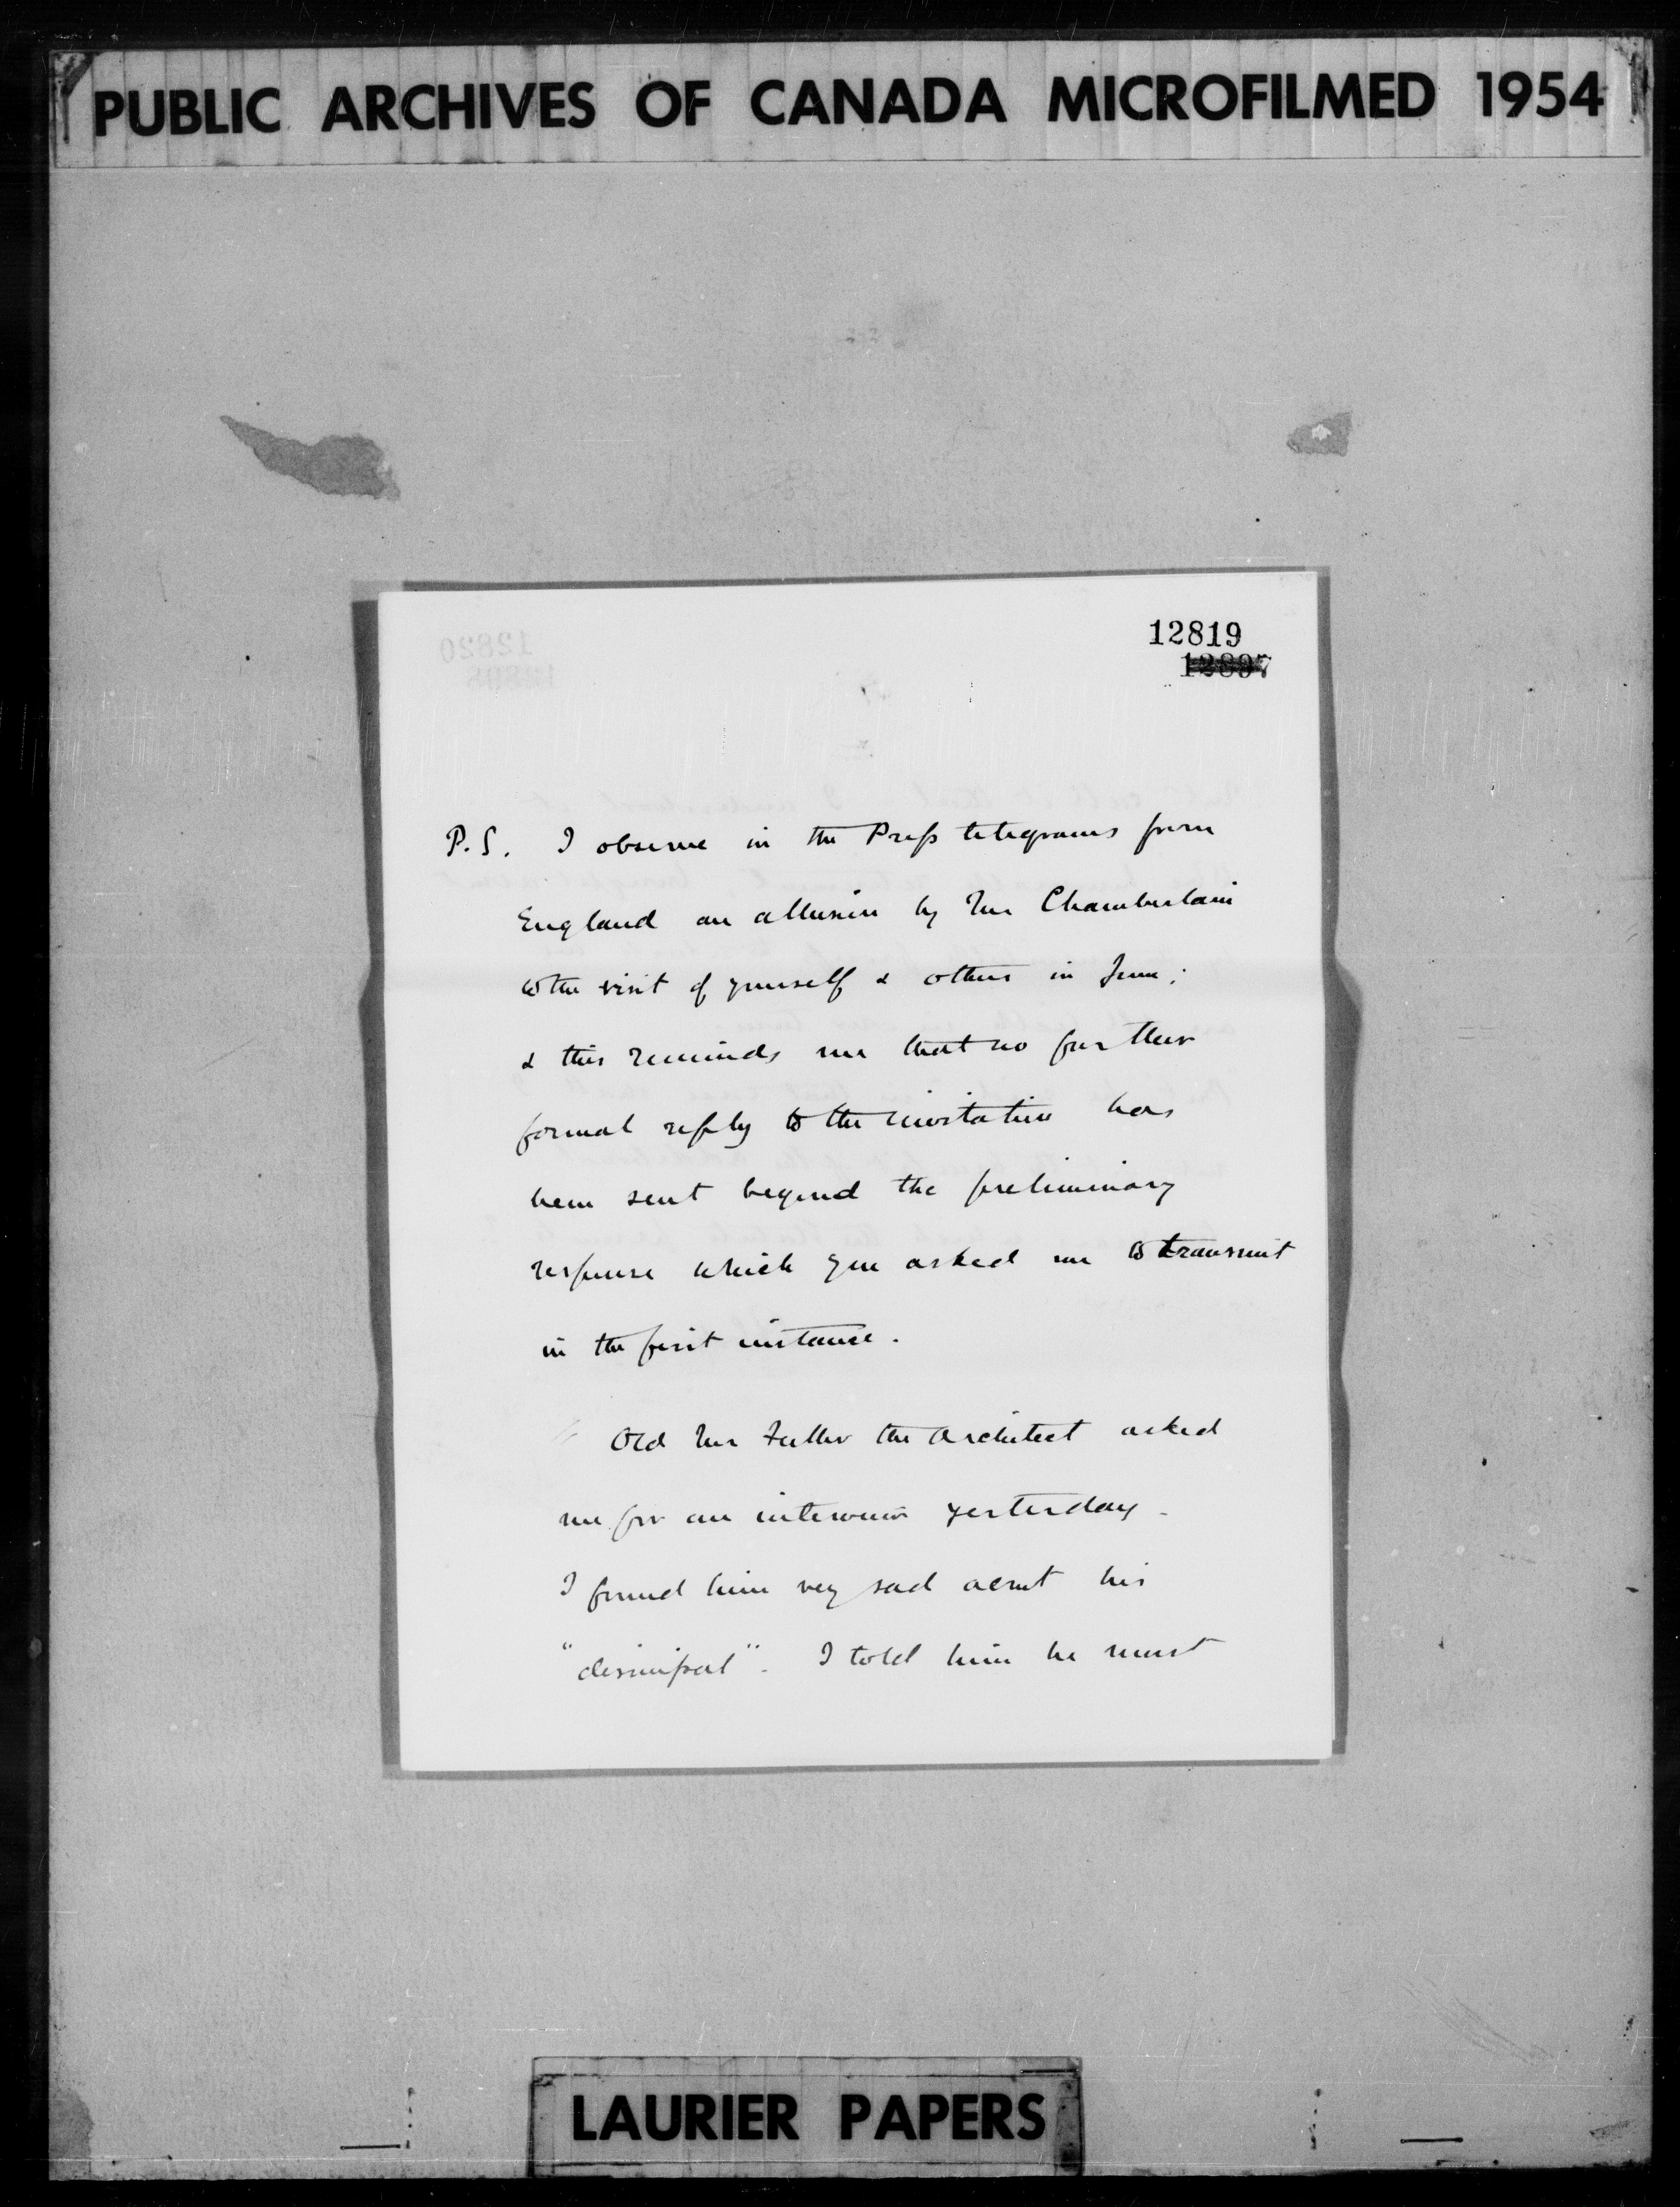 PUBLIC ARCHIVES OF CANADA MICROFILMED 1954
12819
12897
P.S. I observe in the Press telegrams from
England an allusion by Mr Chamberlain
to the visit of yourself & others in June;
& this reminds me that no further
formal reply to the invitation has
been sent beyond the preliminary
response which you asked me to transmit
in the first instance.
Old Mr Fuller the Architect asked
me for an interview yesterday.
I found him very sad about his
"dismissal". I told him he must
LAURIER PAPERS